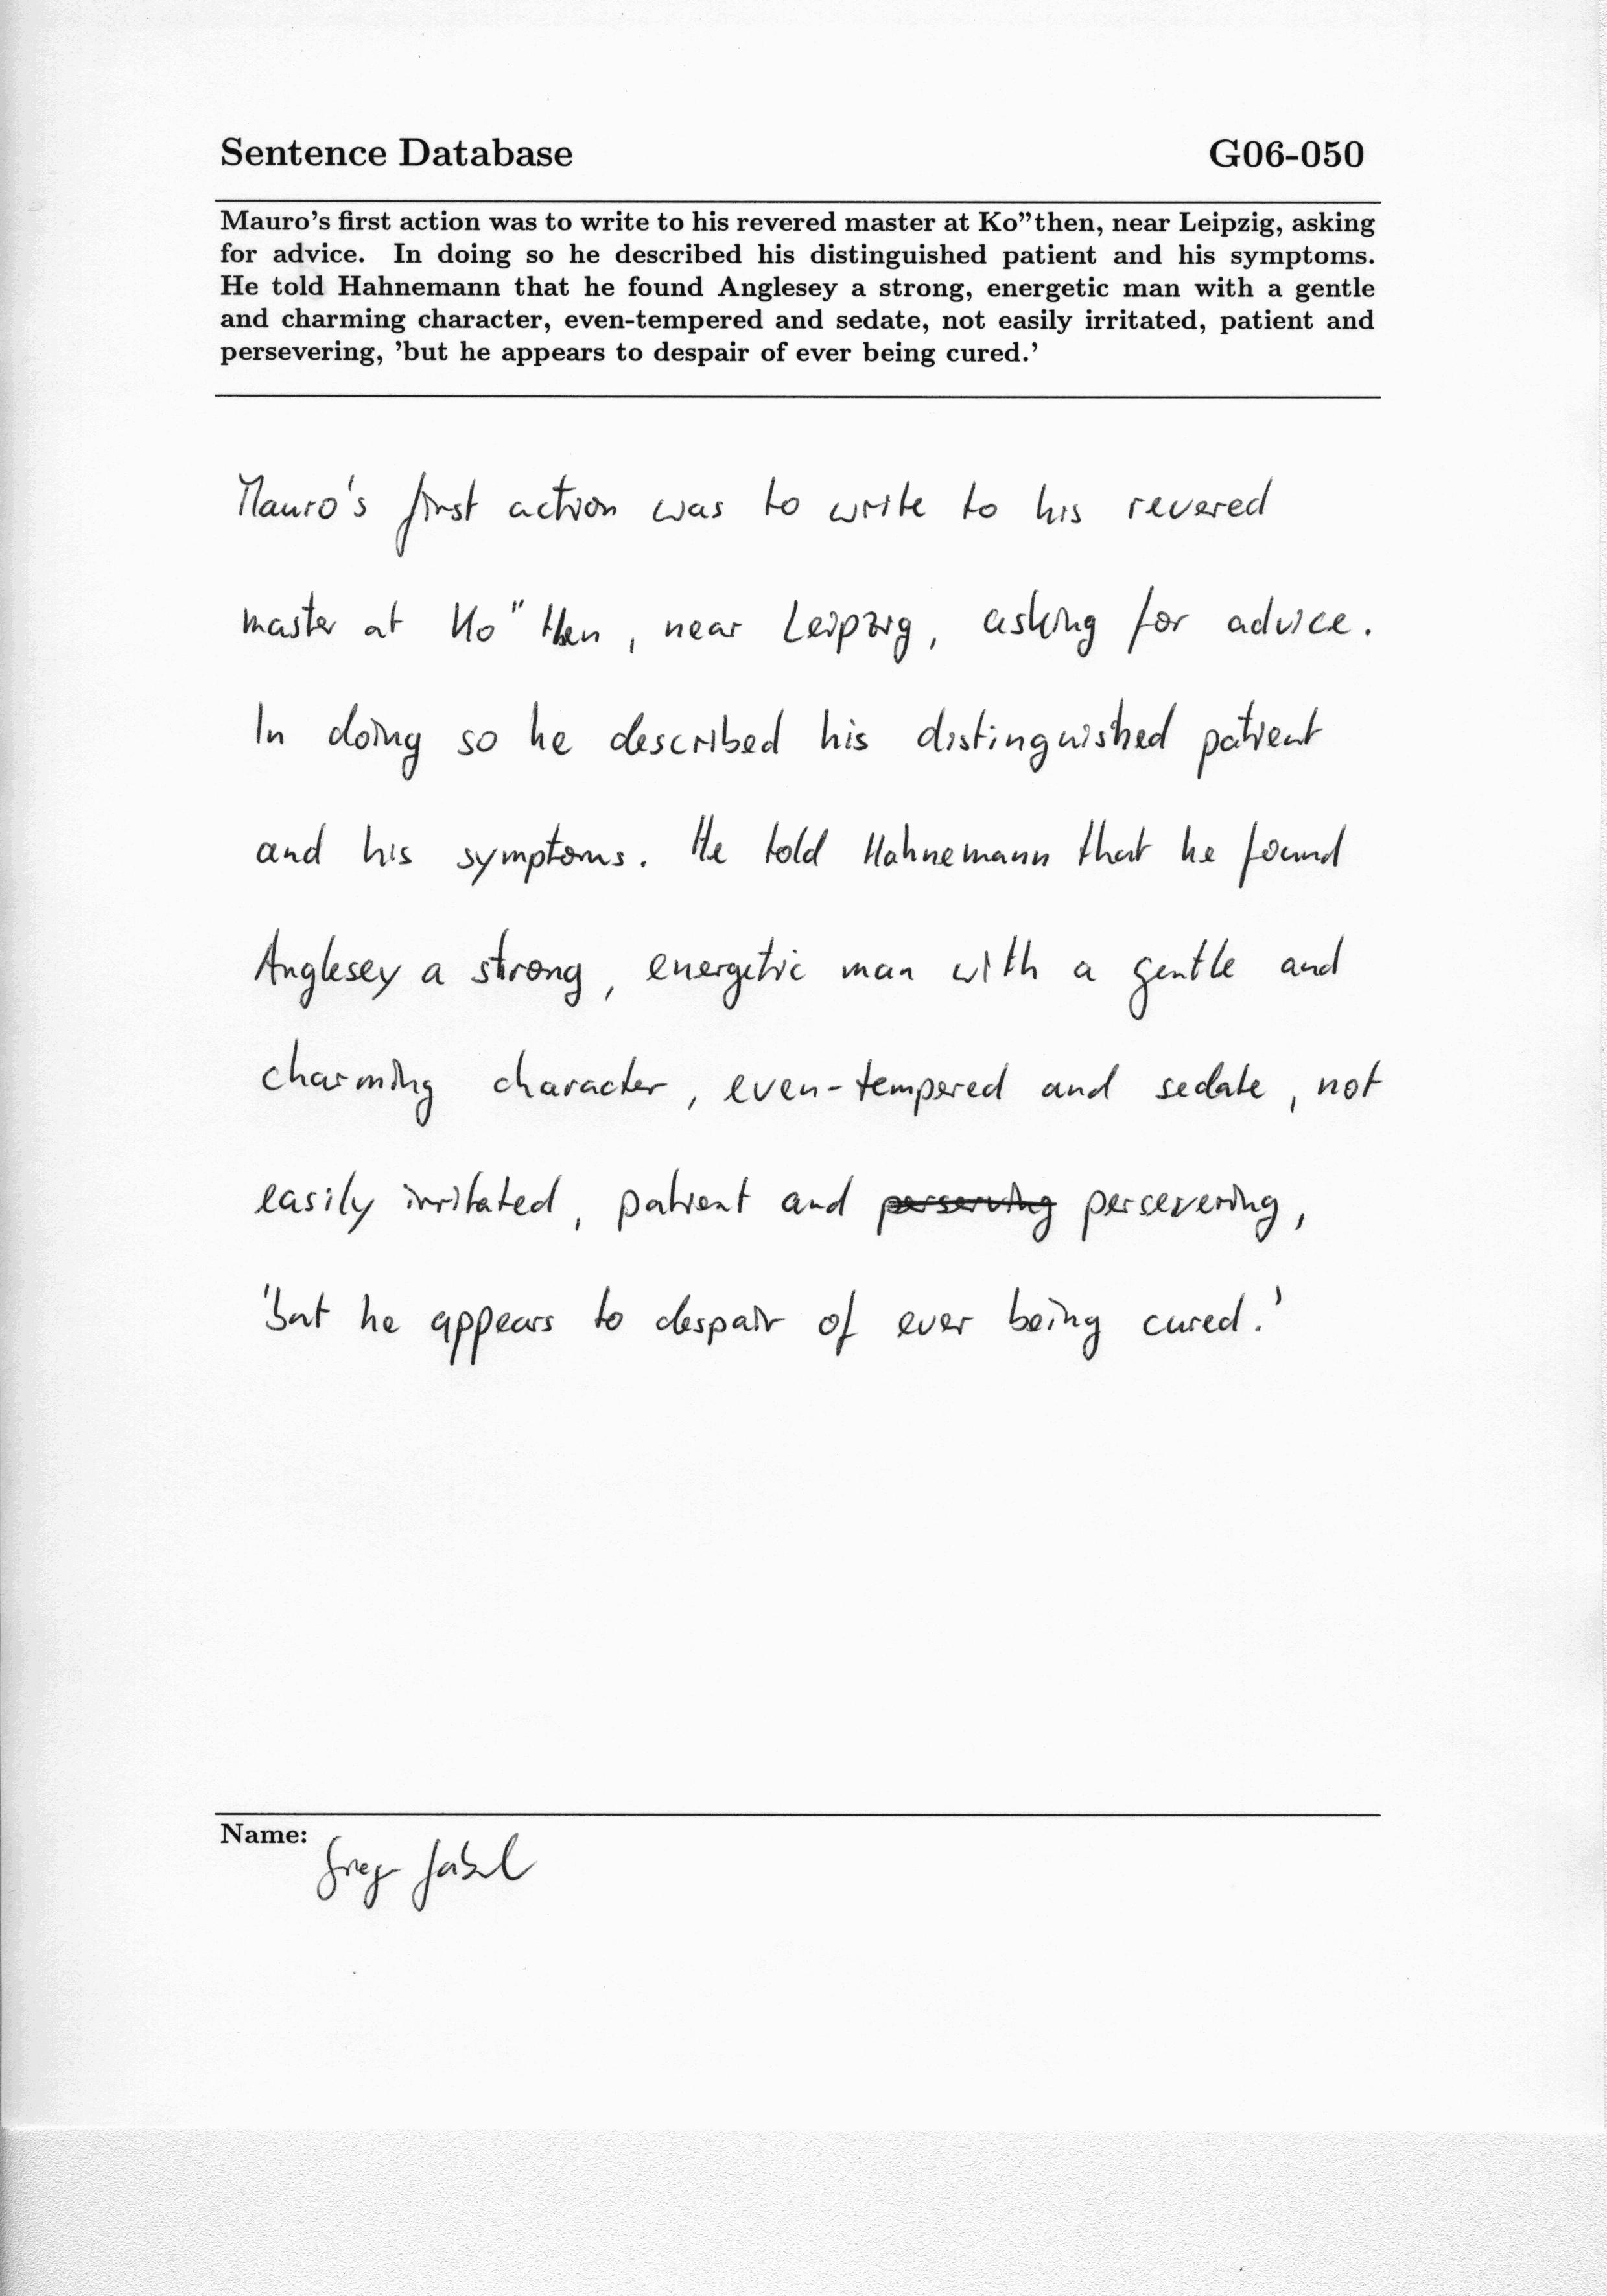 Sentence Database G06-050
Mauro's first action was to write to his revered master at Ko"then, near Leipzig, asking
for advice. In doing so he described his distinguished patient and his symptoms.
He told Hahnemann that he found Anglesey a strong, energetic man with a gentle
and charming character, even-tempered and sedate, not easily irritated, patient and
persevering, 'but he appears to despair of ever being cured.'
Mauro's first action was to write to his revered
master at Ko"then, near Leipzig, asking for advice.
In doing so he described his distinguished patient
and his symptoms. He told Hahnemann that he found
Anglesey a strong, energetic man with a gentle and
charming character, even-tempered and sedate, not
easily irritated, patient and perserving persevering,
'but he appears to despair of ever being cured.'
Name: